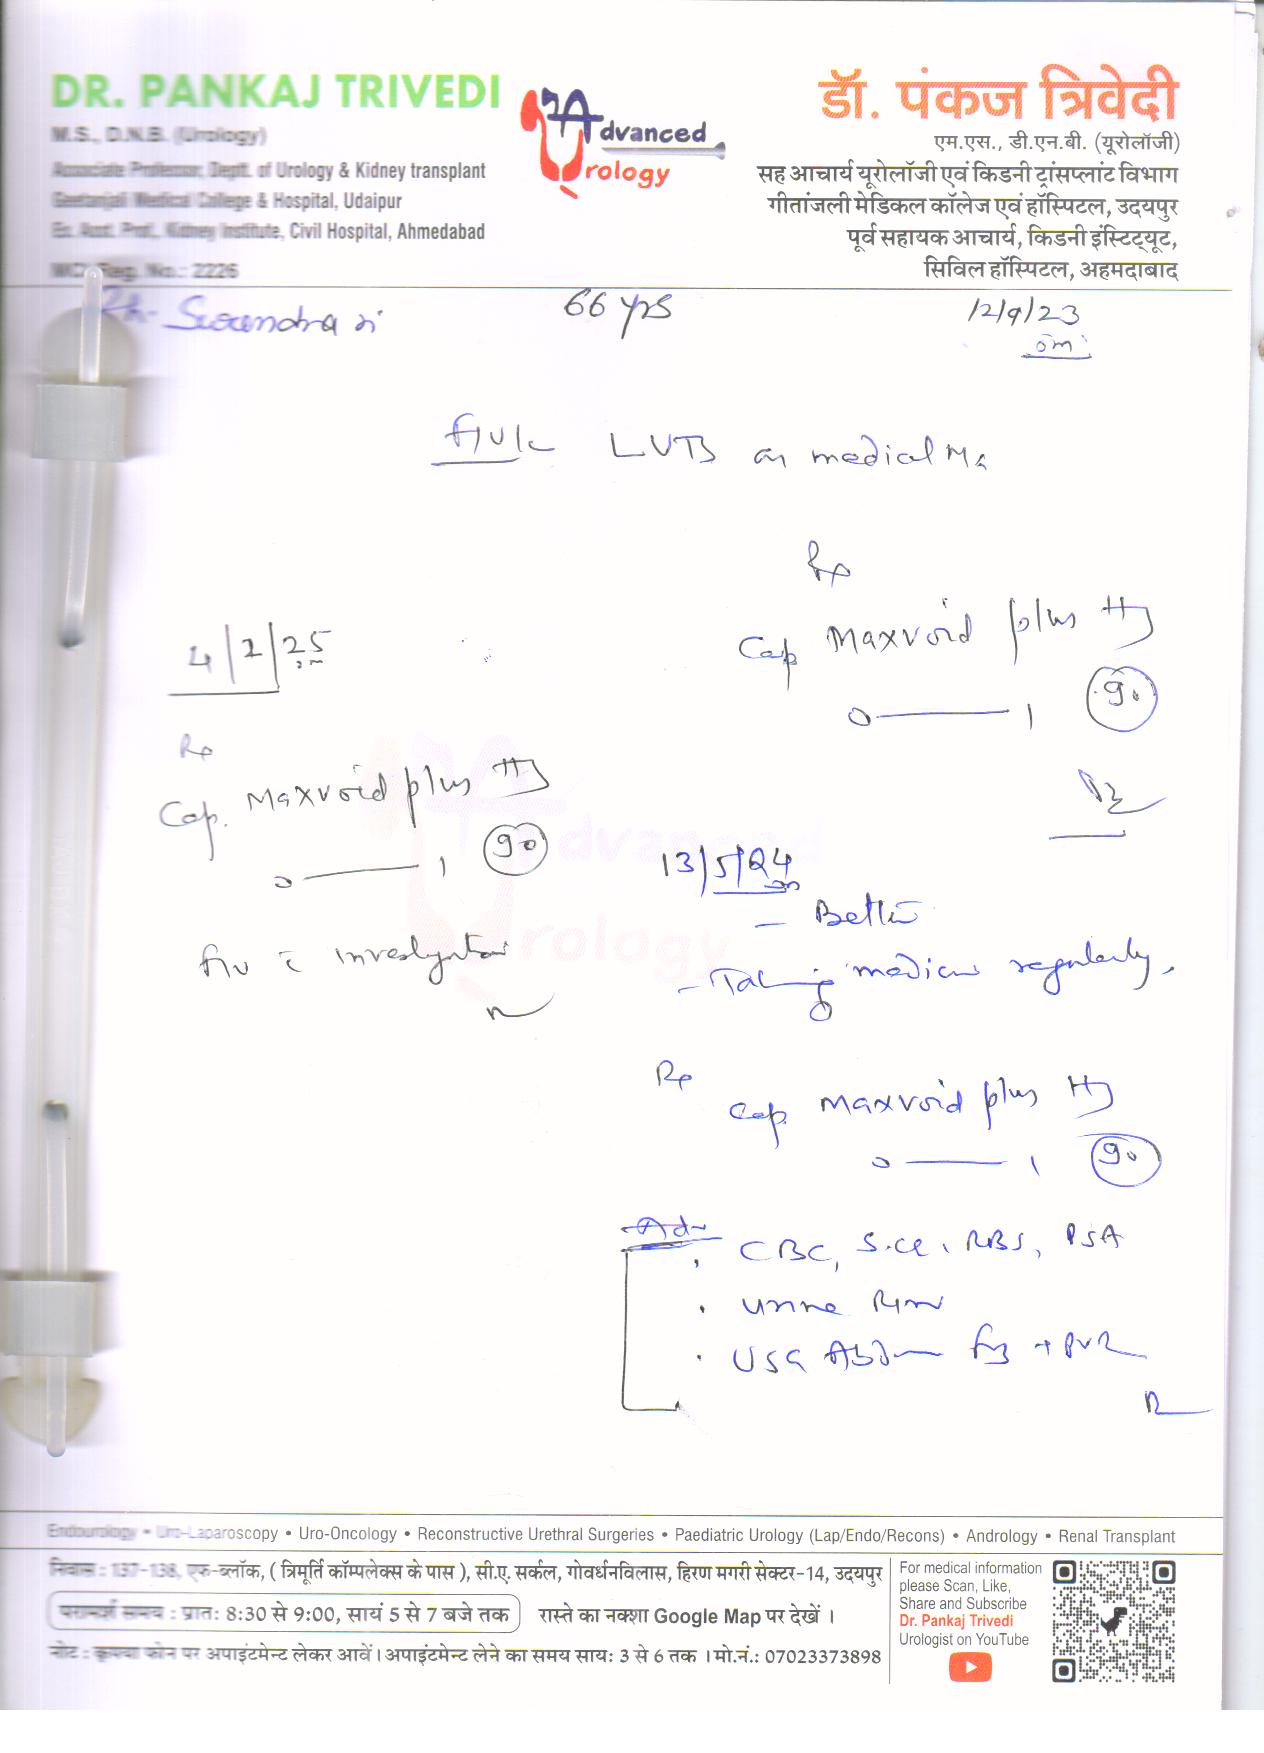 DR. PANKAJ TRIVEDI
M.S., D.N.B. (Urology)
Associate Professor, Deptt. of Urology & Kidney transplant
Geetanjali Medical College & Hospital, Udaipur
Ex. Asst. Prof., Kidney Institute, Civil Hospital, Ahmedabad
Reg. No.: 2226
Advanced
Urology
डॉ. पंकज त्रिवेदी
एम.एस., डी.एन.बी. (यूरोलॉजी)
सह आचार्य यूरोलॉजी एवं किडनी ट्रांसप्लांट विभाग
गीतांजली मेडिकल कॉलेज एवं हॉस्पिटल, उदयपुर
पूर्व सहायक आचार्य, किडनी इंस्टिट्यूट,
सिविल हॉस्पिटल, अहमदाबाद
66 yrs
12/9/23
LUTS on medical
Rp
Cap Maxvoid plus
0 — 1 90
13/5/24
- Better
- Taking medicines regularly.
Rp
Cap Maxvoid plus
0 — 1 90
Adv
. CBC, S.Cr, RBS, PSA
. Urine R/m
. USG Abdomen + PVR
4/2/25
Rp
Cap. Maxvoid plus
0 — 1 90
investigation
Advanced
Urology
Endourology • Uro-Laparoscopy • Uro-Oncology • Reconstructive Urethral Surgeries • Paediatric Urology (Lap/Endo/Recons) • Andrology • Renal Transplant
निवास : 137-138, एफ-ब्लॉक, ( त्रिमूर्ति कॉम्पलेक्स के पास ), सी.ए. सर्कल, गोवर्धनविलास, हिरण मगरी सेक्टर-14, उदयपुर
परामर्श समय : प्रातः 8:30 से 9:00, सायं 5 से 7 बजे तक रास्ते का नक्शा Google Map पर देखें ।
नोट : कृपया फोन पर अपाइंटमेन्ट लेकर आवें । अपाइंटमेन्ट लेने का समय सायः 3 से 6 तक । मो.नं.: 07023373898
For medical information
please Scan, Like,
Share and Subscribe
Dr. Pankaj Trivedi
Urologist on YouTube